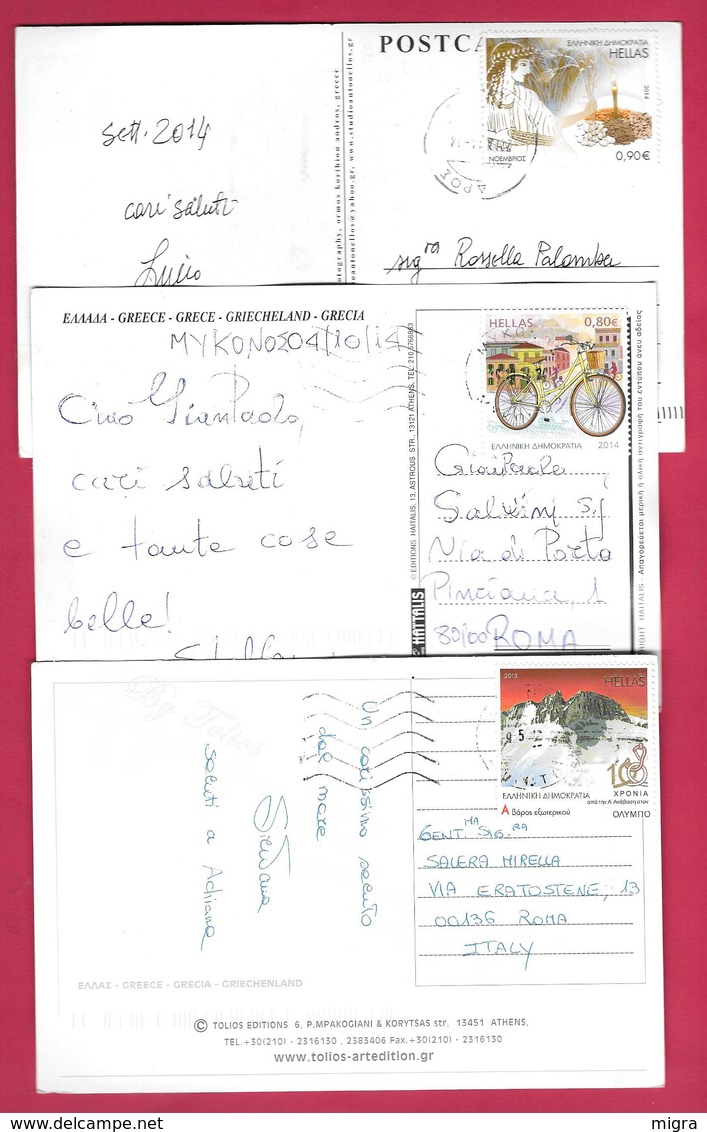 POSTCA
ΕΛΛΗΝΙΚΗ ΔΗΜΟΚΡΑΤΙΑ
HELLAS
2014
ΝΟΕΜΒΡΙΟΣ
0,90€
ΔΡΟΣ
sett. 2014
cari saluti
Lucio
otography, ormos korthiou andros, greece
ioantonellos@yahoo.gr, www.studioantonellos.gr
sig.ra Rossella Palomba
ΕΛΛΑΔΑ - GREECE - GRECE - GRIECHELAND - GRECIA
ΜΥΚΟΝΟΣ 04/10/14
Ciao GianPaolo,
cari saluti
e tante cose
belle!
HELLAS
0,80€
ΕΛΛΗΝΙΚΗ ΔΗΜΟΚΡΑΤΙΑ
2014
© EDITIONS HAITALIS, 13, ASTROUS STR., 13121 ATHENS, TEL: 210 5766883
HAITALIS
RIGHT HAITALIS - Απαγορεύεται μερική ή ολική αντιγραφή του εντύπου άνευ αδείας
GianPaolo
Salvini s.j
Via di Porta
Pinciana, 1
ROMA
By Tolios
Un carissimo saluto
dal mare
Silvana
saluti a Adriana
2013
HELLAS
100
ΧΡΟΝΙΑ
από την Α' Ανάβαση στον
ΟΛΥΜΠΟ
ΕΛΛΗΝΙΚΗ ΔΗΜΟΚΡΑΤΙΑ
Α Βάρος εξωτερικού
GENT.MA SIG.RA
SALERA MIRELLA
VIA ERATOSTENE, 13
00136 ROMA
ITALY
ΕΛΛΑΣ - GREECE - GRECIA - GRIECHENLAND
© TOLIOS EDITIONS 6, P.MPAKOGIANI & KORYTSAS str. 13451 ATHENS.
TEL.+30(210) - 2316130, 2383406 Fax.+30(210) - 2316130
www.tolios-artedition.gr
DELCAMPE.NET
migra